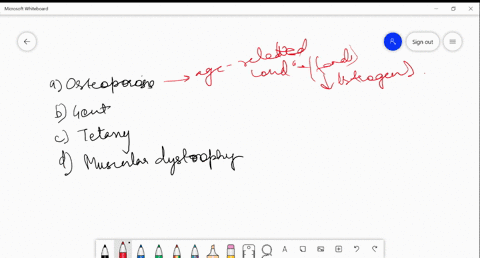 Microsoft Whiteboard
Sign out
a) Osteoporosis → age-related
cond
↓ estrogen)
b) Gout
c) Tetany
d) Muscular dystrophy